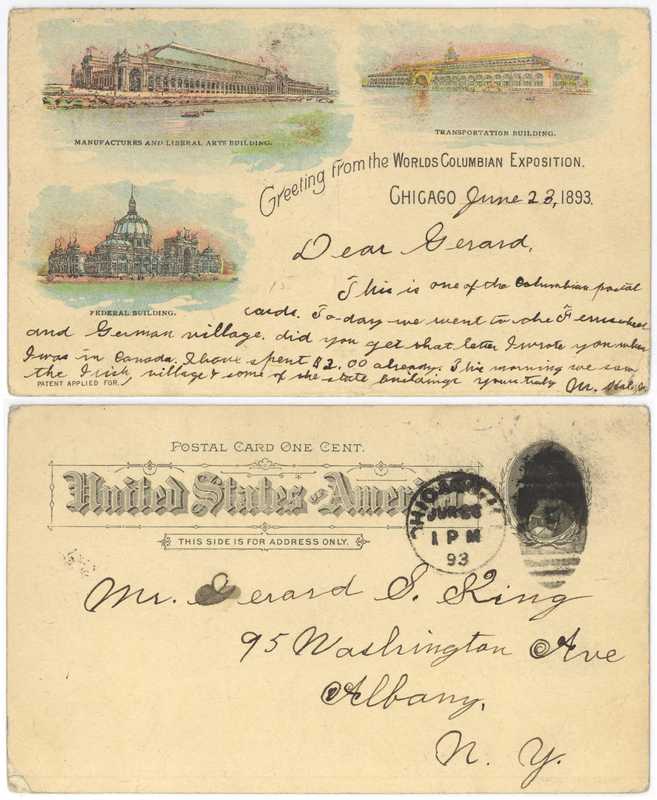 MANUFACTURES AND LIBERAL ARTS BUILDING.
TRANSPORTATION BUILDING.
Greeting from the WORLDS COLUMBIAN EXPOSITION.
CHICAGO June 23, 1893.
FEDERAL BUILDING.
Dear Gerard,
This is one of the Columbian postal
cards. To-day we went to the Ferris wheel
and German village. did you get that letter I wrote you when
I was in Canada. I have spent $2.00 already. This morning we saw
the Irish village & some of the state buildings yours truly M.
PATENT APPLIED FOR.
POSTAL CARD ONE CENT.
United States of America
THIS SIDE IS FOR ADDRESS ONLY.
CHICAGO, ILL.
JUN 26
1 PM
93
Mr. Gerard S. King
95 Washington Ave
Albany,
N. Y.